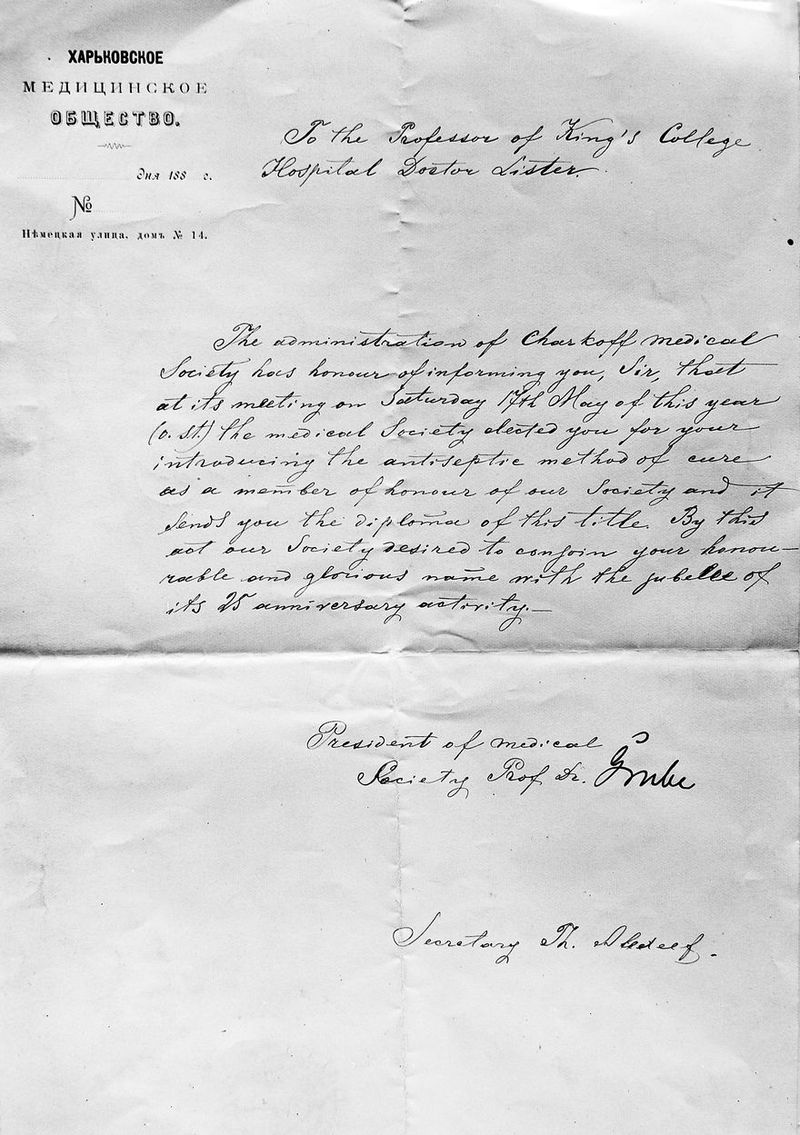 ХАРЬКОВСКОЕ
МЕДИЦИНСКОЕ
ОБЩЕСТВО.
дня 188 г.
№
Нѣмецкая улица, домъ № 14.
To the Professor of King's College
Hospital Doctor Lister.
The administration of Charkoff medical
Society has honour of informing you, Sir, that
at its meeting on Saturday 17th May of this year
(o. st.) the medical Society elected you for your
introducing the antiseptic method of cure
as a member of honour of our Society and it
sends you the diploma of this title. By this
act our Society desired to conjoin your honou-
rable and glorious name with the jubelee of
its 25 anniversary activity.—
President of medical
Society Prof. Dr. Grube
Secretary Th.